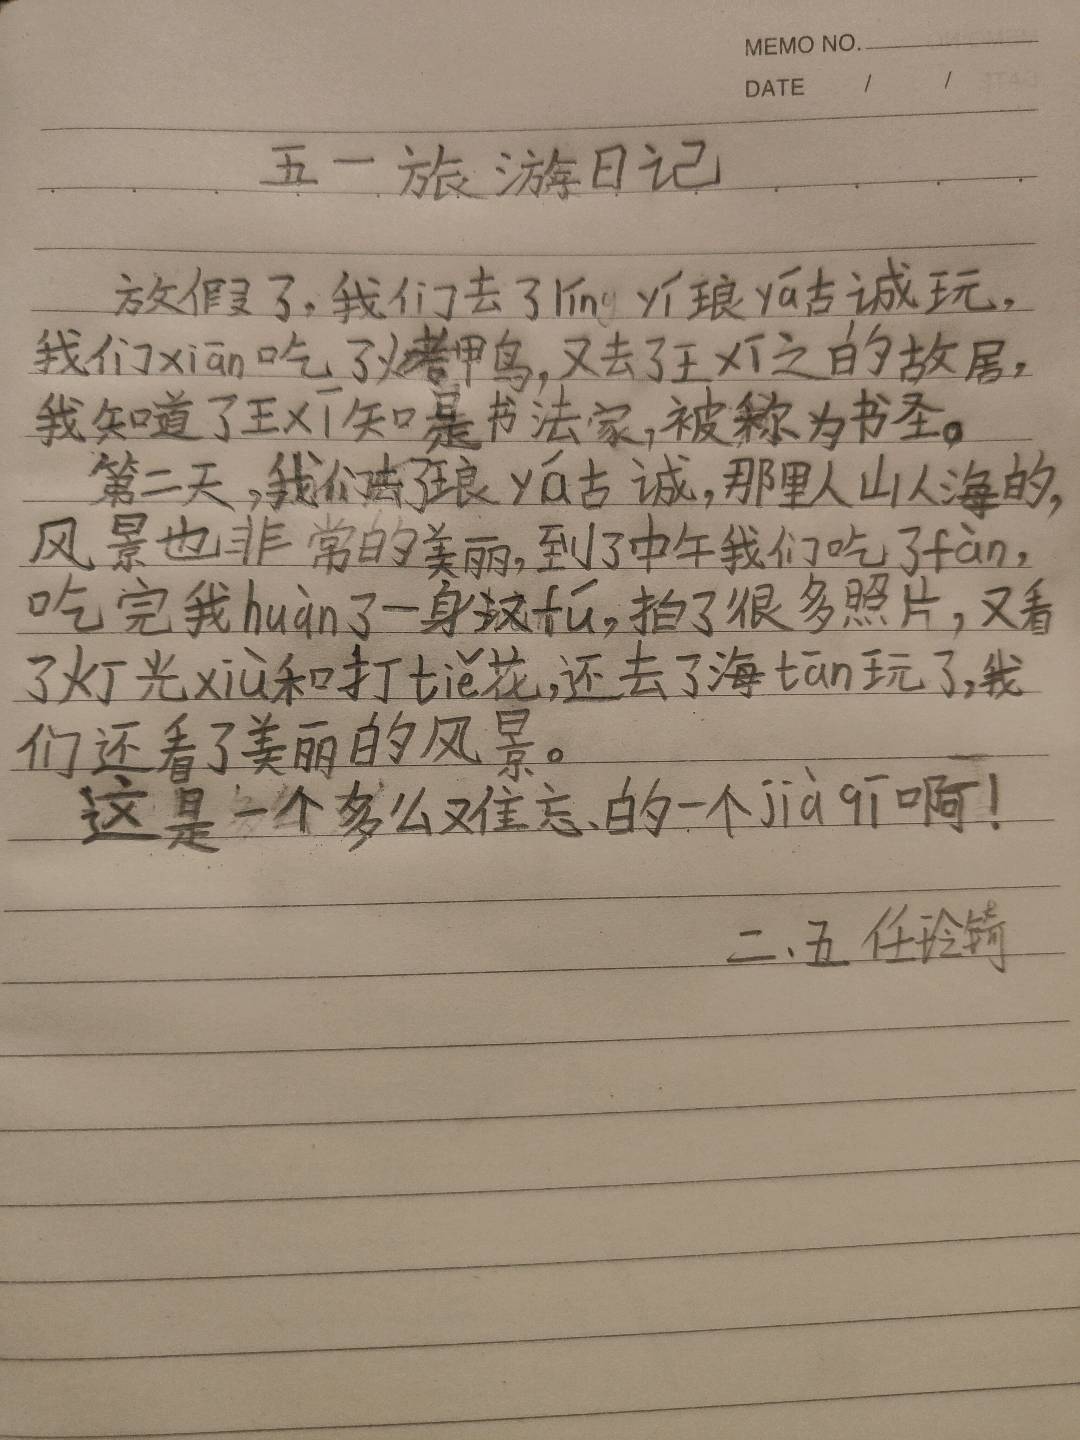 MEMO NO.
DATE / /
五一旅游日记
放假了，我们去了líng yí琅yá古诚玩，
我们xiān吃了烤鸭，又去了王xī之的故居，
我知道了王xī知是书法家，被称为书圣。
第二天，我们去了琅yá古诚，那里人山人海的，
风景也非常的美丽，到了中午我们吃了fàn，
吃完我huàn了一身汉fú，拍了很多照片，又看
了灯光xiù和打tiě花，还去了海tān玩了，我
们还看了美丽的风景。
这是一个多么难忘的一个jià qī啊！
二、五 任玲锜